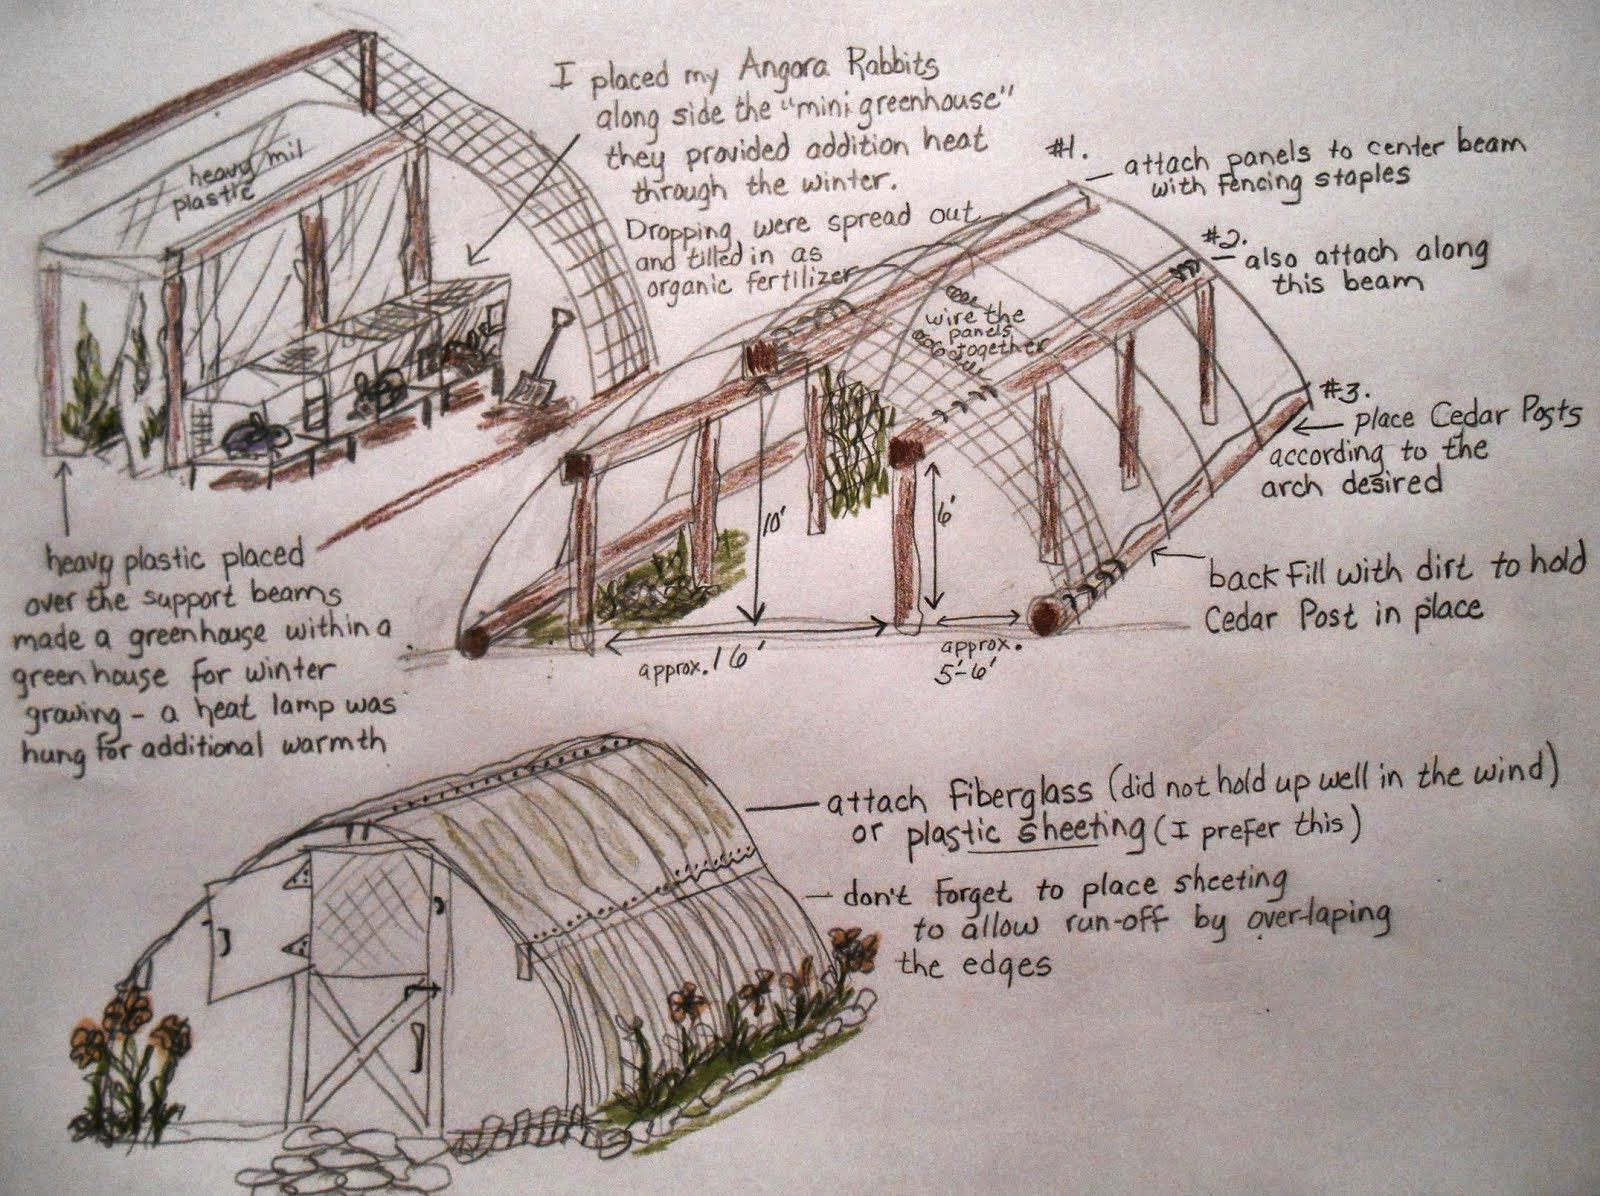 I placed my Angora Rabbits
along side the "mini greenhouse"
they provided addition heat
through the winter.
Dropping were spread out
and tilled in as
organic fertilizer
heavy mil
plastic
heavy plastic placed
over the support beams
made a greenhouse within a
greenhouse for winter
growing - a heat lamp was
hung for additional warmth
#1.
attach panels to center beam
with fencing staples
#2.
also attach along
this beam
wire the
panels
together
#3.
place Cedar Posts
according to the
arch desired
back fill with dirt to hold
Cedar Post in place
10'
6'
approx. 16'
approx.
5'-6'
attach fiberglass (did not hold up well in the wind)
or plastic sheeting (I prefer this)
don't forget to place sheeting
to allow run-off by over-laping
the edges